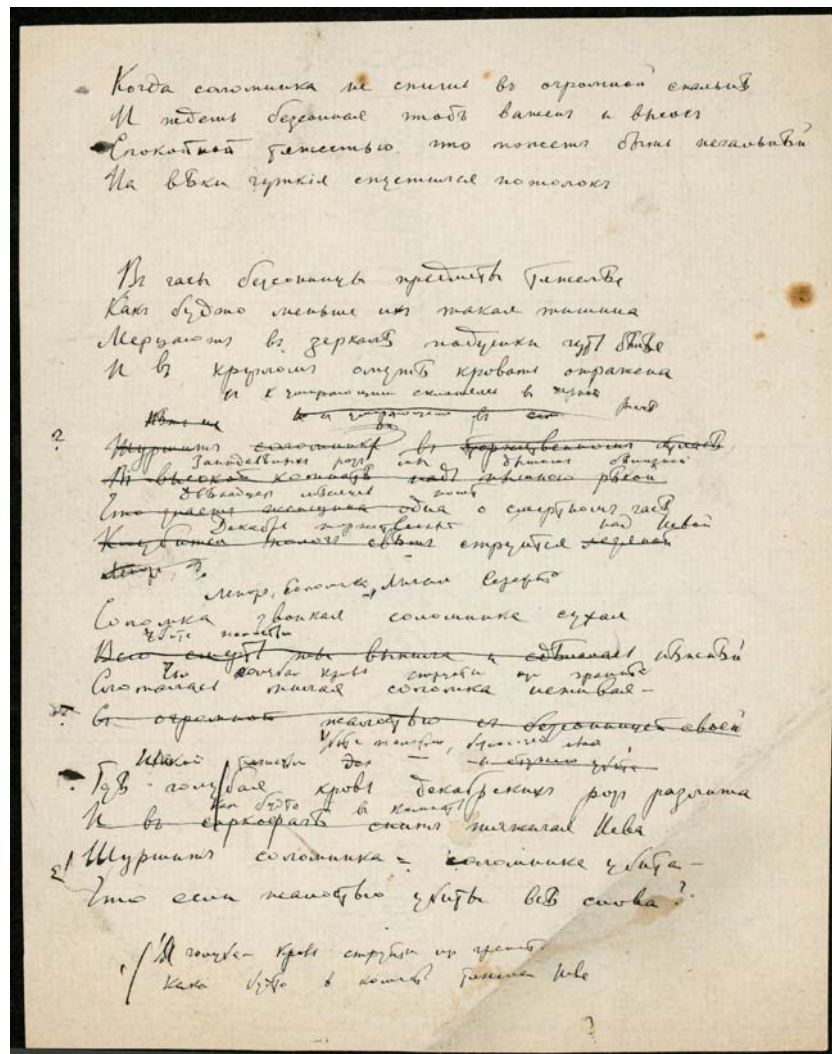 Когда соломинка не спишь въ огромной спальнѣ
И ждешь безсонная чтобъ важенъ и высокъ
Спокойной тяжестью что можетъ быть печальнѣй
На вѣки чуткія спустился потолокъ
Въ часы безсонницы предметы тяжелѣе
Какъ будто меньше ихъ такая тишина
Мерцаютъ въ зеркалѣ подушки чуть бѣлѣе
И въ кругломъ омутѣ кровать отражена
к умирающим склонялись в
?
Шуршитъ соломинка въ торжественномъ атласѣ
розы
Въ высокой комнатѣ надъ чёрною рѣкой
Двѣнадцать мѣсяцевъ поютъ
Что знаетъ женщина одна о смертномъ часѣ
Декабрь торжественный над Невой
Клубится пологъ свѣтъ струится ледяной
Ленор,
Ленор, Соломинка, Лигейя Серафита
Соломка звонкая соломинка сухая
убита жалостью
Всю смерть ты выпила и сдѣлалась нѣжнѣй
Что голубая кровь струится из гранита
Сломалась милая соломка неживая –
?
Въ огромной жалостью съ безсонницей своей
Убита жалостью,
Гдѣ голубая кровь декабрскихъ розъ разлита
как будто в комнате
И въ саркофагѣ спитъ тяжелая Нева
Шуршитъ соломинка – соломинка убита –
Что если жалостью убиты всѣ слова?
И голубая кровь струится из гранита
Как будто в комнате тяжелая Нева